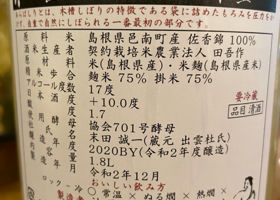 んばしりとは、木槽しぼりの特徴である袋に詰めたもろみを圧力を
ず、自重で自然にしぼられる一番最初の部分です。
原料米 島根県邑南町産 佐香錦 100%
生産者 契約栽培米農業法人 田吾作
原材料 米(島根県産)・米麹(島根県産米)
精米歩合 麹米 75% 掛米 75%
アルコール 17度
日本酒度 +10.0度
酸度 1.7
協会701号酵母
杜氏 末田 誠一(蔵元 出雲杜氏)
2020BY(令和2年度醸造)
1.8L
令和2年12月
要冷蔵
品目 清酒
おいしい飲み方
ロック・冷 〇常温 × ぬる燗 × 熱燗 ×